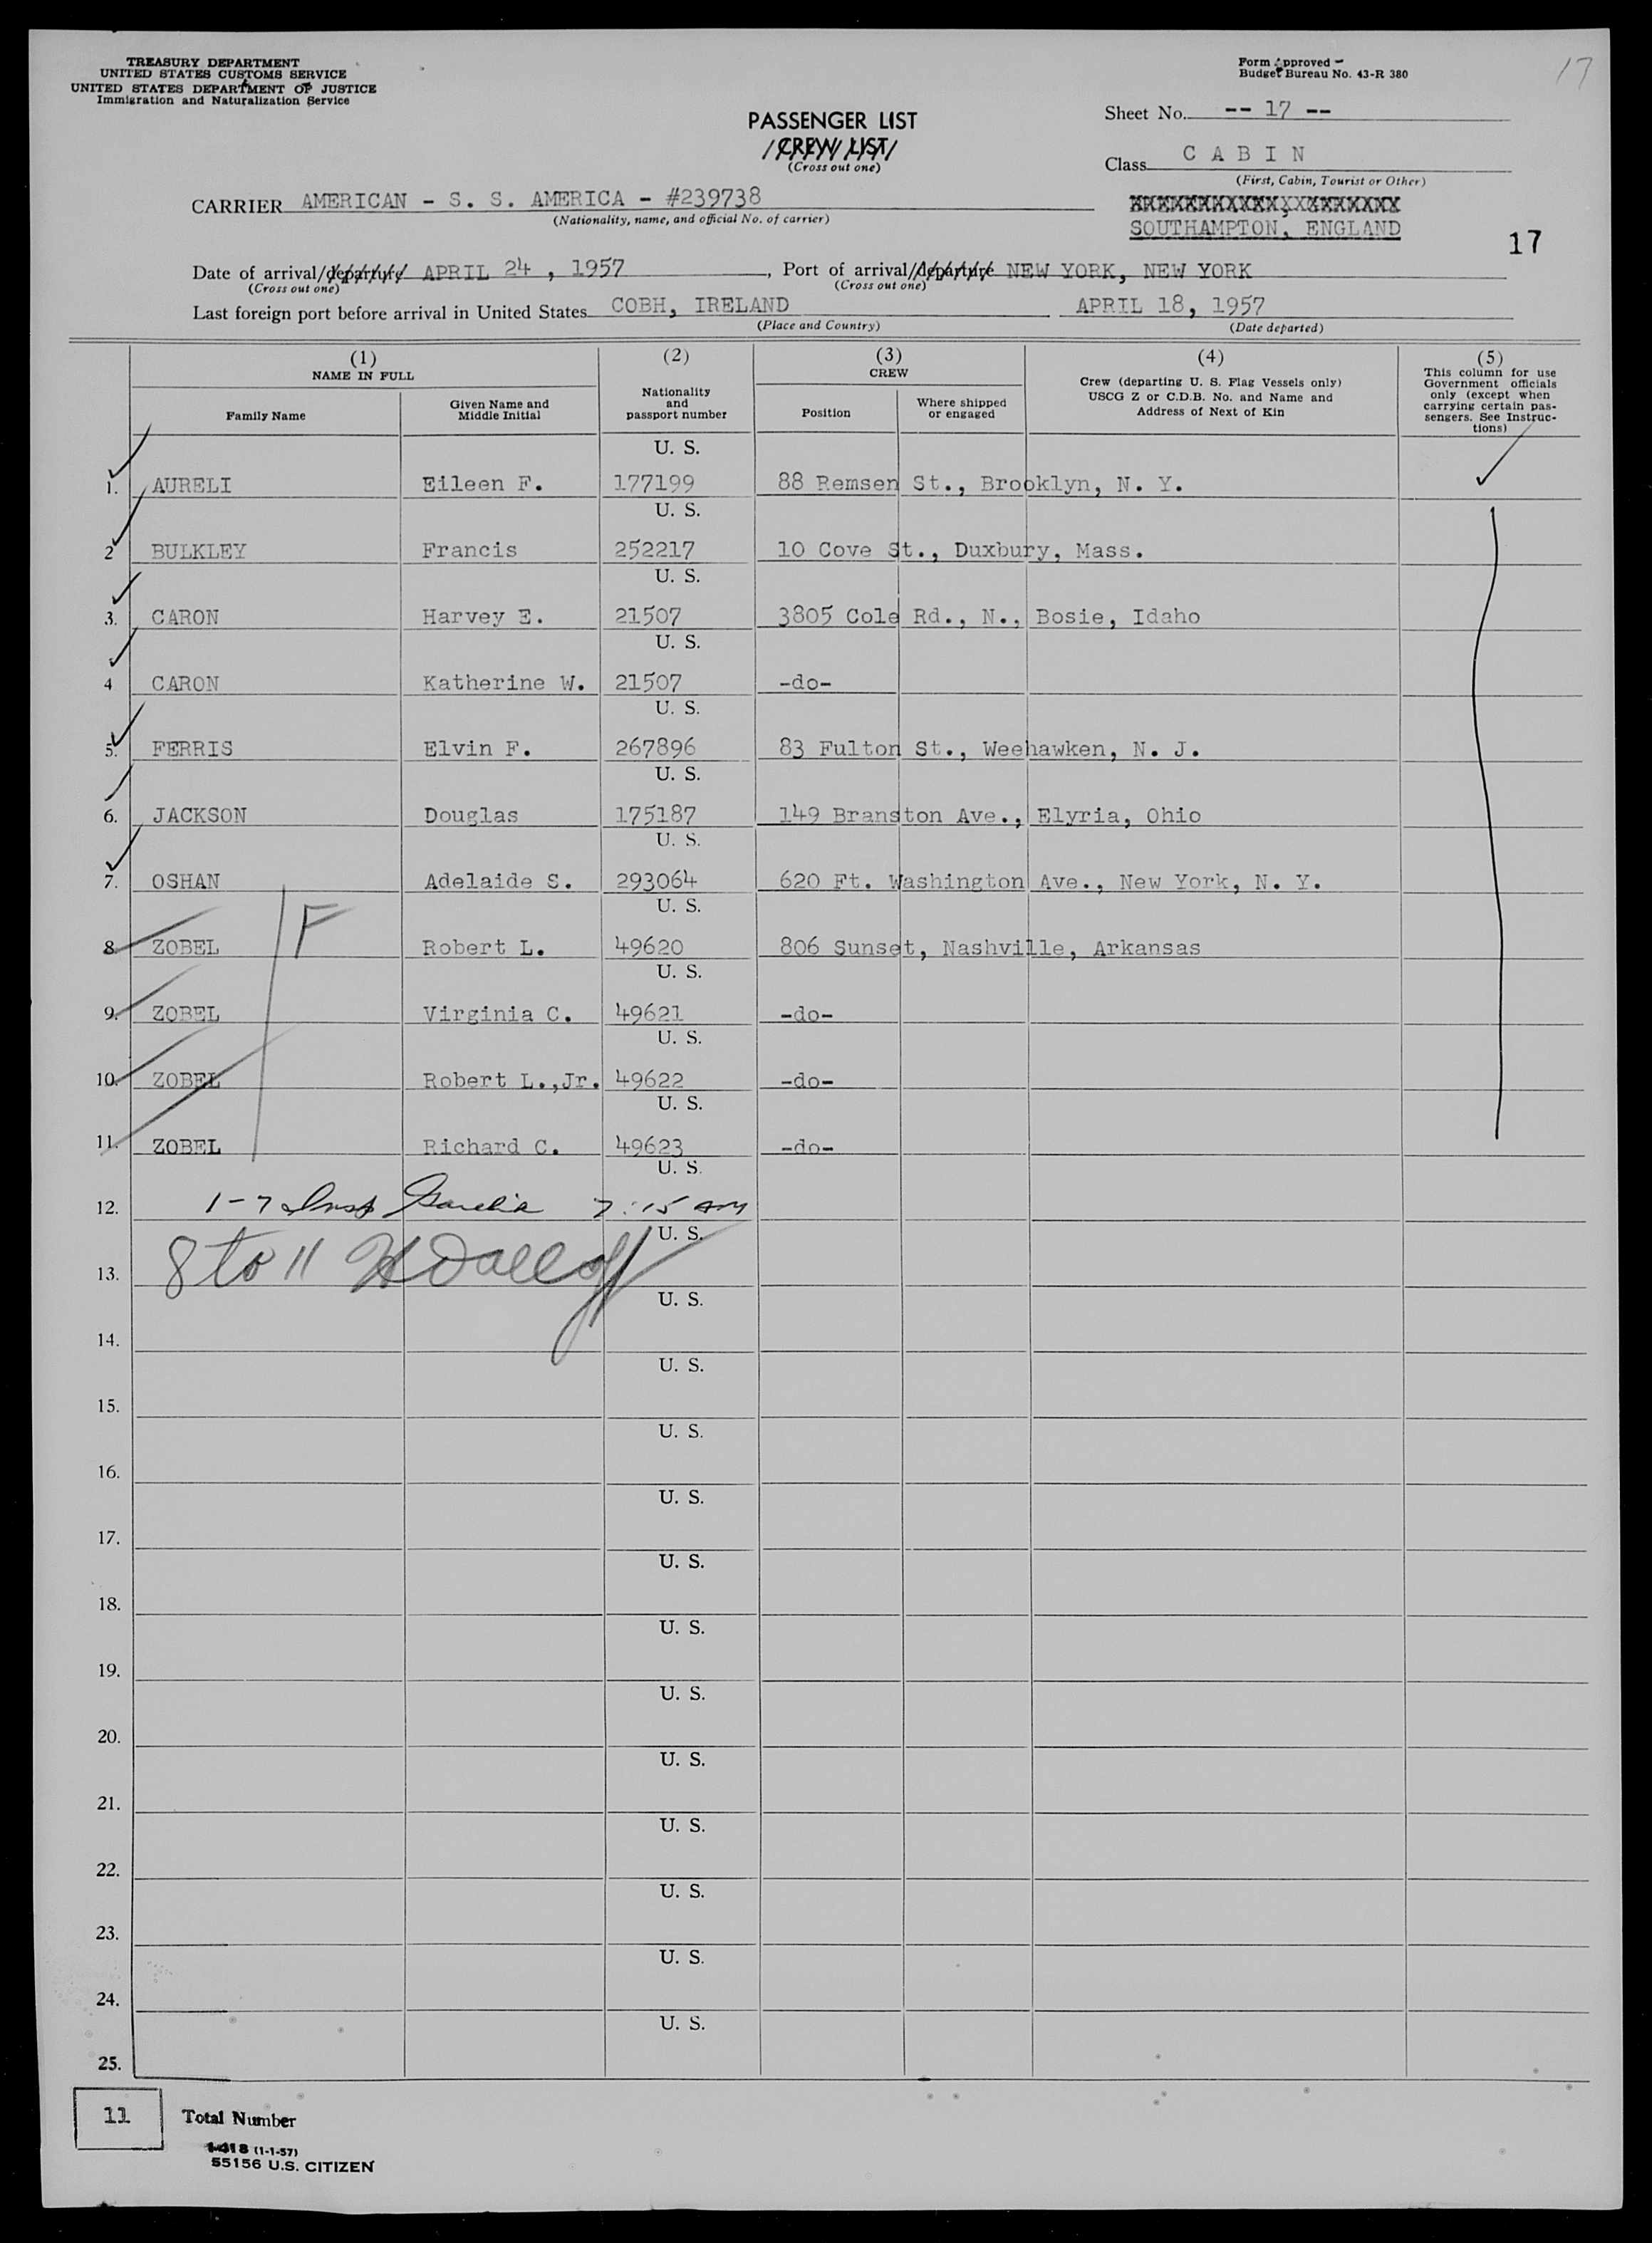 TREASURY DEPARTMENT
UNITED STATES CUSTOMS SERVICE
UNITED STATES DEPARTMENT OF JUSTICE
Immigration and Naturalization Service
Form Approved
Budget Bureau No. 43-R 380
17
PASSENGER LIST
CREW LIST
(Cross out one)
Sheet No. -- 17 --
Class CABIN
(First, Cabin, Tourist or Other)
CARRIER AMERICAN - S. S. AMERICA - #239738
(Nationality, name, and official No. of carrier)
SOUTHAMPTON, ENGLAND
17
Date of arrival/departure APRIL 24 , 1957, Port of arrival/departure NEW YORK, NEW YORK
(Cross out one) (Cross out one)
Last foreign port before arrival in United States COBH, IRELAND APRIL 18, 1957
(Place and Country) (Date departed)
(1) NAME IN FULL
Family Name
Given Name and Middle Initial
(2) Nationality and passport number
(3) CREW
Position
Where shipped or engaged
(4) Crew (departing U. S. Flag Vessels only) USCG Z or C.D.B. No. and Name and Address of Next of Kin
(5) This column for use Government officials only (except when carrying certain passengers. See Instructions)
U. S.
1. AURELI Eileen F. 177199 88 Remsen St., Brooklyn, N. Y.
U. S.
2 BULKLEY Francis 252217 10 Cove St., Duxbury, Mass.
U. S.
3. CARON Harvey E. 21507 3805 Cole Rd., N., Bosie, Idaho
U. S.
4 CARON Katherine W. 21507 -do-
U. S.
5. FERRIS Elvin F. 267896 83 Fulton St., Weehawken, N. J.
U. S.
6. JACKSON Douglas 175187 149 Branston Ave., Elyria, Ohio
U. S.
7. OSHAN Adelaide S. 293064 620 Ft. Washington Ave., New York, N. Y.
F U. S.
8. ZOBEL Robert L. 49620 806 Sunset, Nashville, Arkansas
U. S.
9. ZOBEL Virginia C. 49621 -do-
U. S.
10. ZOBEL Robert L.,Jr. 49622 -do-
U. S.
11. ZOBEL Richard C. 49623 -do-
U. S.
12. 1-7 Insp 7:15 AM
U. S.
13. 8 to 11
U. S.
14.
U. S.
15.
U. S.
16.
U. S.
17.
U. S.
18.
U. S.
19.
U. S.
20.
U. S.
21.
U. S.
22.
U. S.
23.
U. S.
24.
U. S.
25.
11 Total Number
I-418 (1-1-57)
55156 U.S. CITIZEN